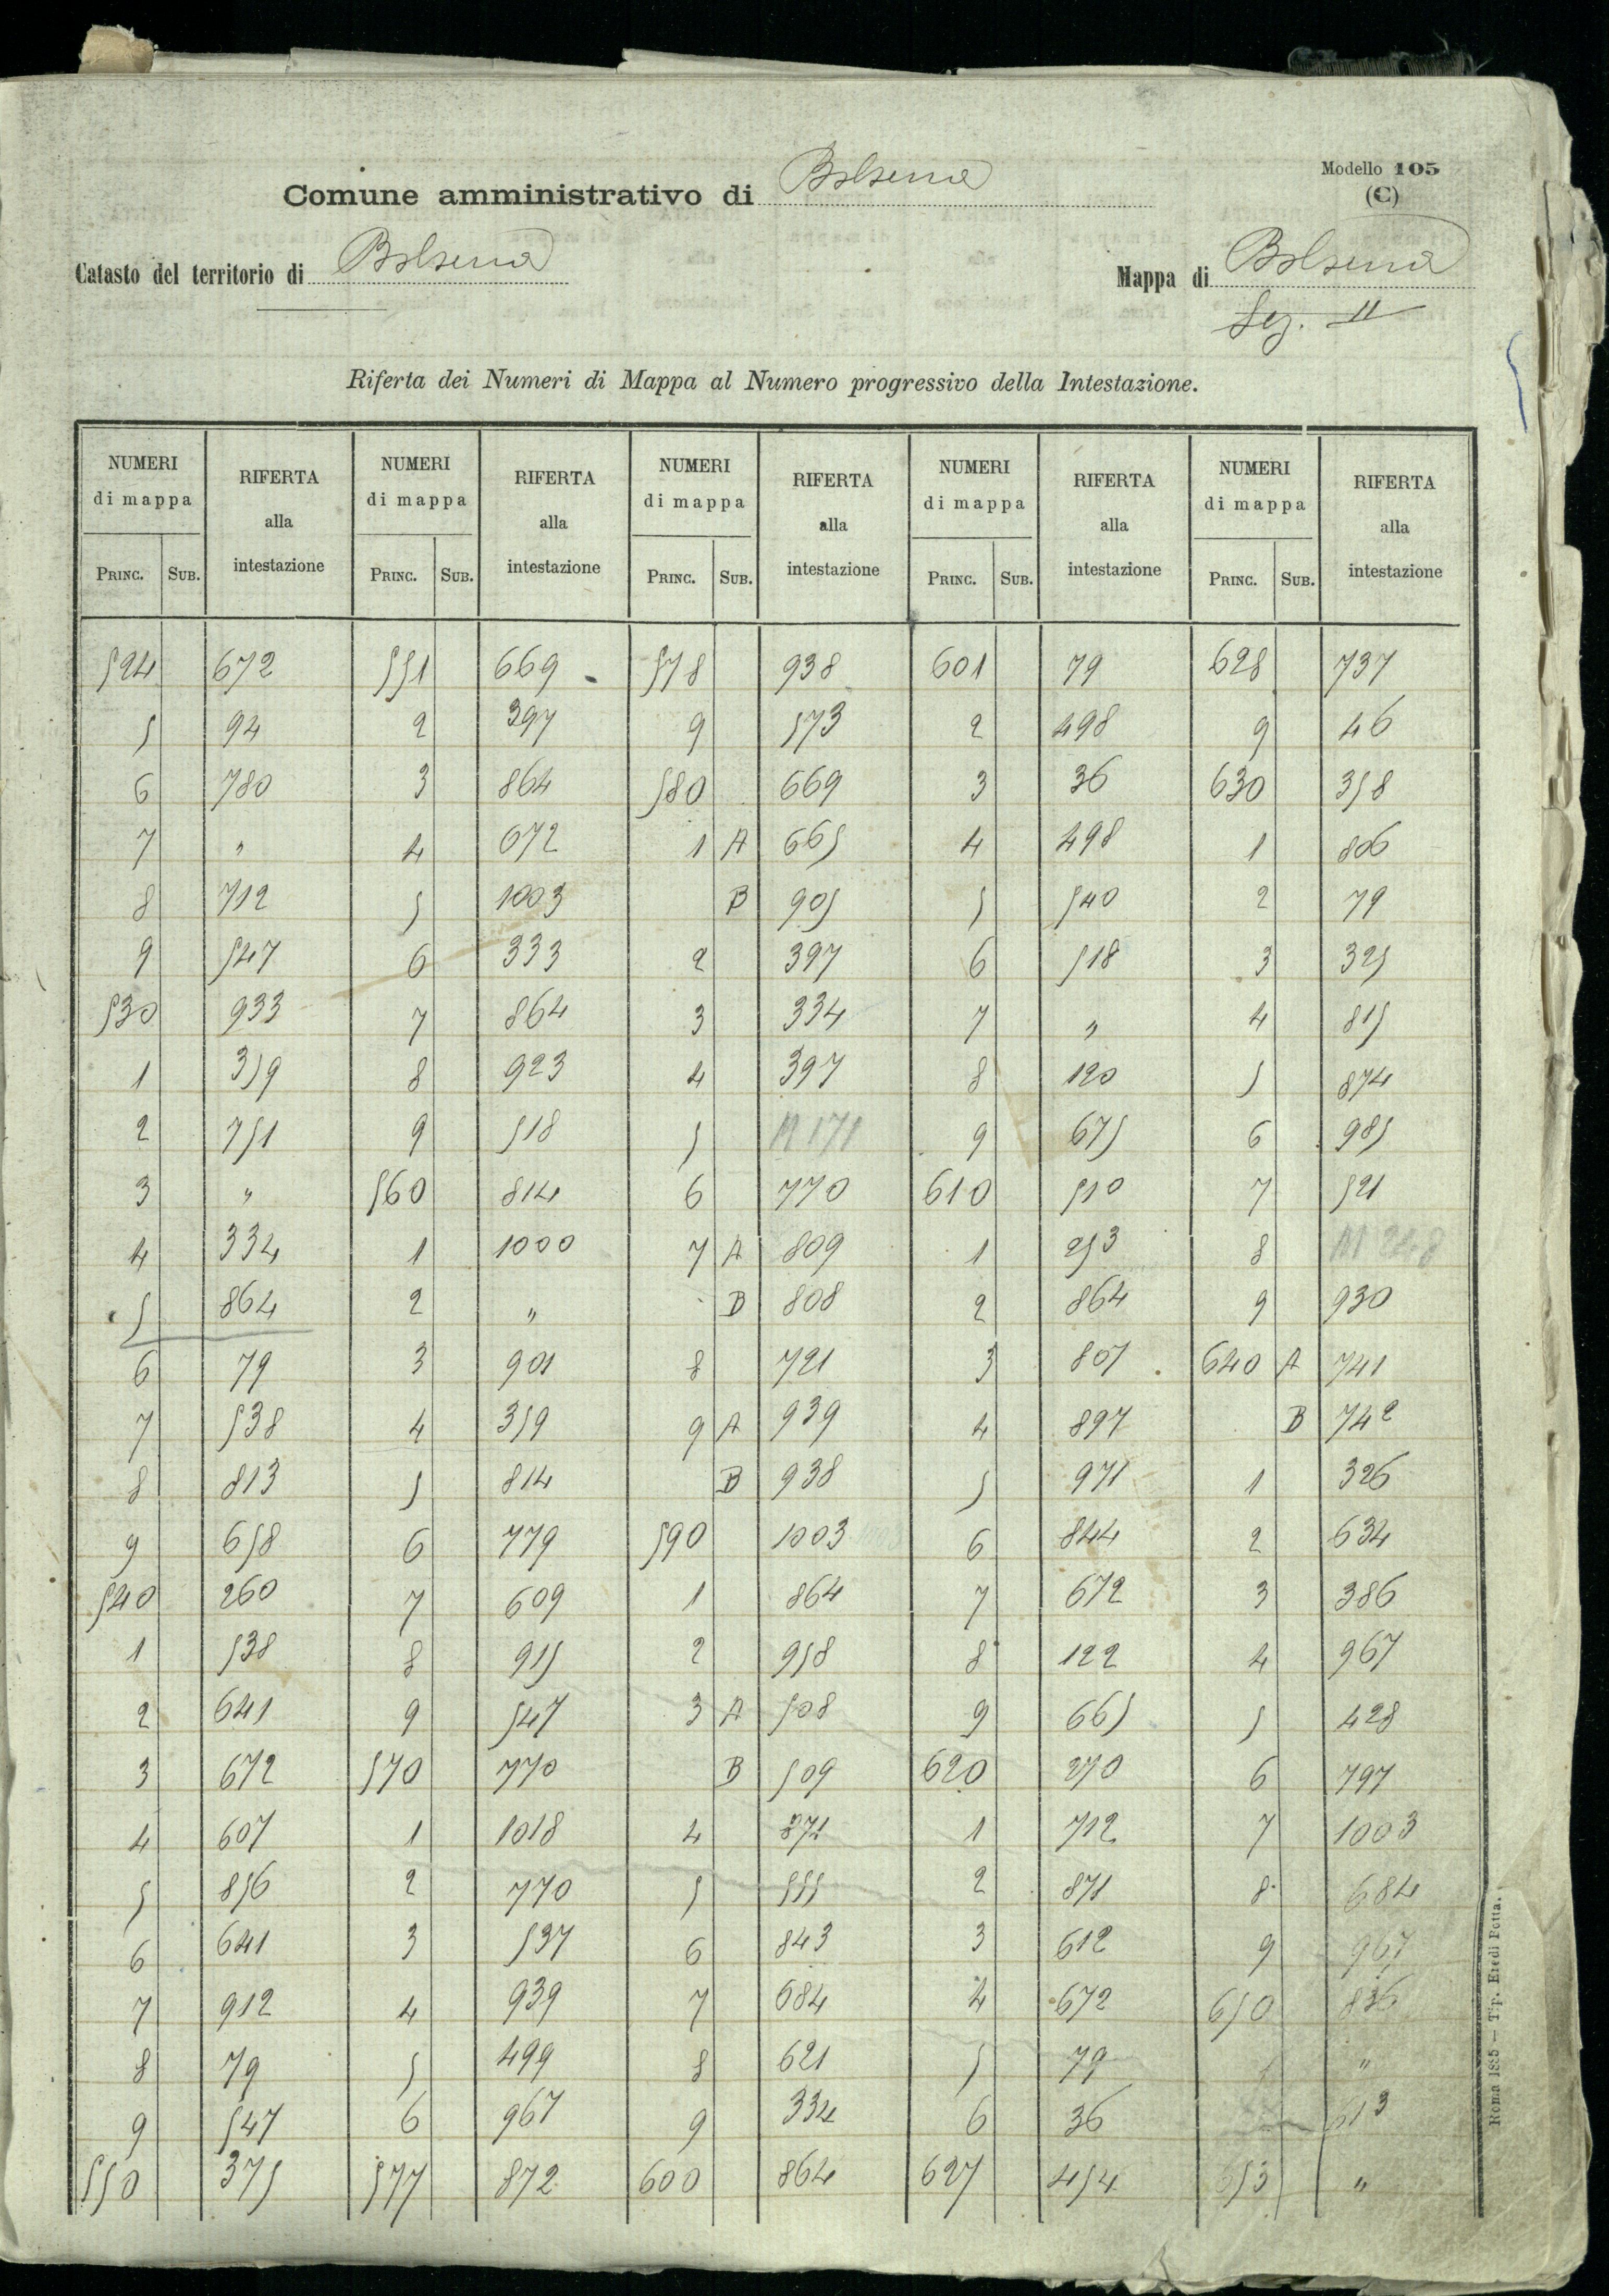 Modello 105
(C)
Comune amministrativo di Bolsena
Catasto del territorio di Bolsena Mappa di Bolsena
Sez. II
Riferta dei Numeri di Mappa al Numero progressivo della Intestazione.
NUMERI di mappa RIFERTA alla intestazione NUMERI di mappa RIFERTA alla intestazione NUMERI di mappa RIFERTA alla intestazione NUMERI di mappa RIFERTA alla intestazione NUMERI di mappa RIFERTA alla intestazione
PRINC. SUB. PRINC. SUB. PRINC. SUB. PRINC. SUB. PRINC. SUB.
524 672 551 669 578 938 601 79 628 737
5 94 2 397 9 573 2 498 9 46
6 780 3 864 580 669 3 36 630 358
7 " 4 672 1 A 665 4 498 1 806
8 712 5 1003 B 905 5 540 2 79
9 547 6 333 2 397 6 518 3 325
530 933 7 864 3 334 7 " 4 815
1 359 8 923 4 397 8 120 5 874
2 751 9 518 5 M 171 9 675 6 985
3 " 560 814 6 770 610 510 7 521
4 334 1 1000 7 A 809 1 253 8 M 248
5 864 2 " B 808 2 864 9 930
6 79 3 901 8 721 3 807 640 A 741
7 538 4 359 9 A 939 4 897 B 742
8 813 5 814 B 938 5 971 1 326
9 658 6 779 590 1003 6 844 2 634
540 260 7 609 1 864 7 672 3 386
1 538 8 915 2 958 8 122 4 967
2 641 9 547 3 A 508 9 665 5 428
3 672 570 770 B 509 620 270 6 797
4 607 1 1018 4 871 1 712 7 1003
5 856 2 770 5 555 2 871 8 684
6 641 3 537 6 843 3 612 9 967
7 912 4 939 7 684 4 672 650 836
8 79 5 499 8 621 5 79 1 "
9 547 6 967 9 334 6 36 613
550 375 577 872 600 864 627 454 653 "
Roma 1885 — Tip. Eredi Botta.